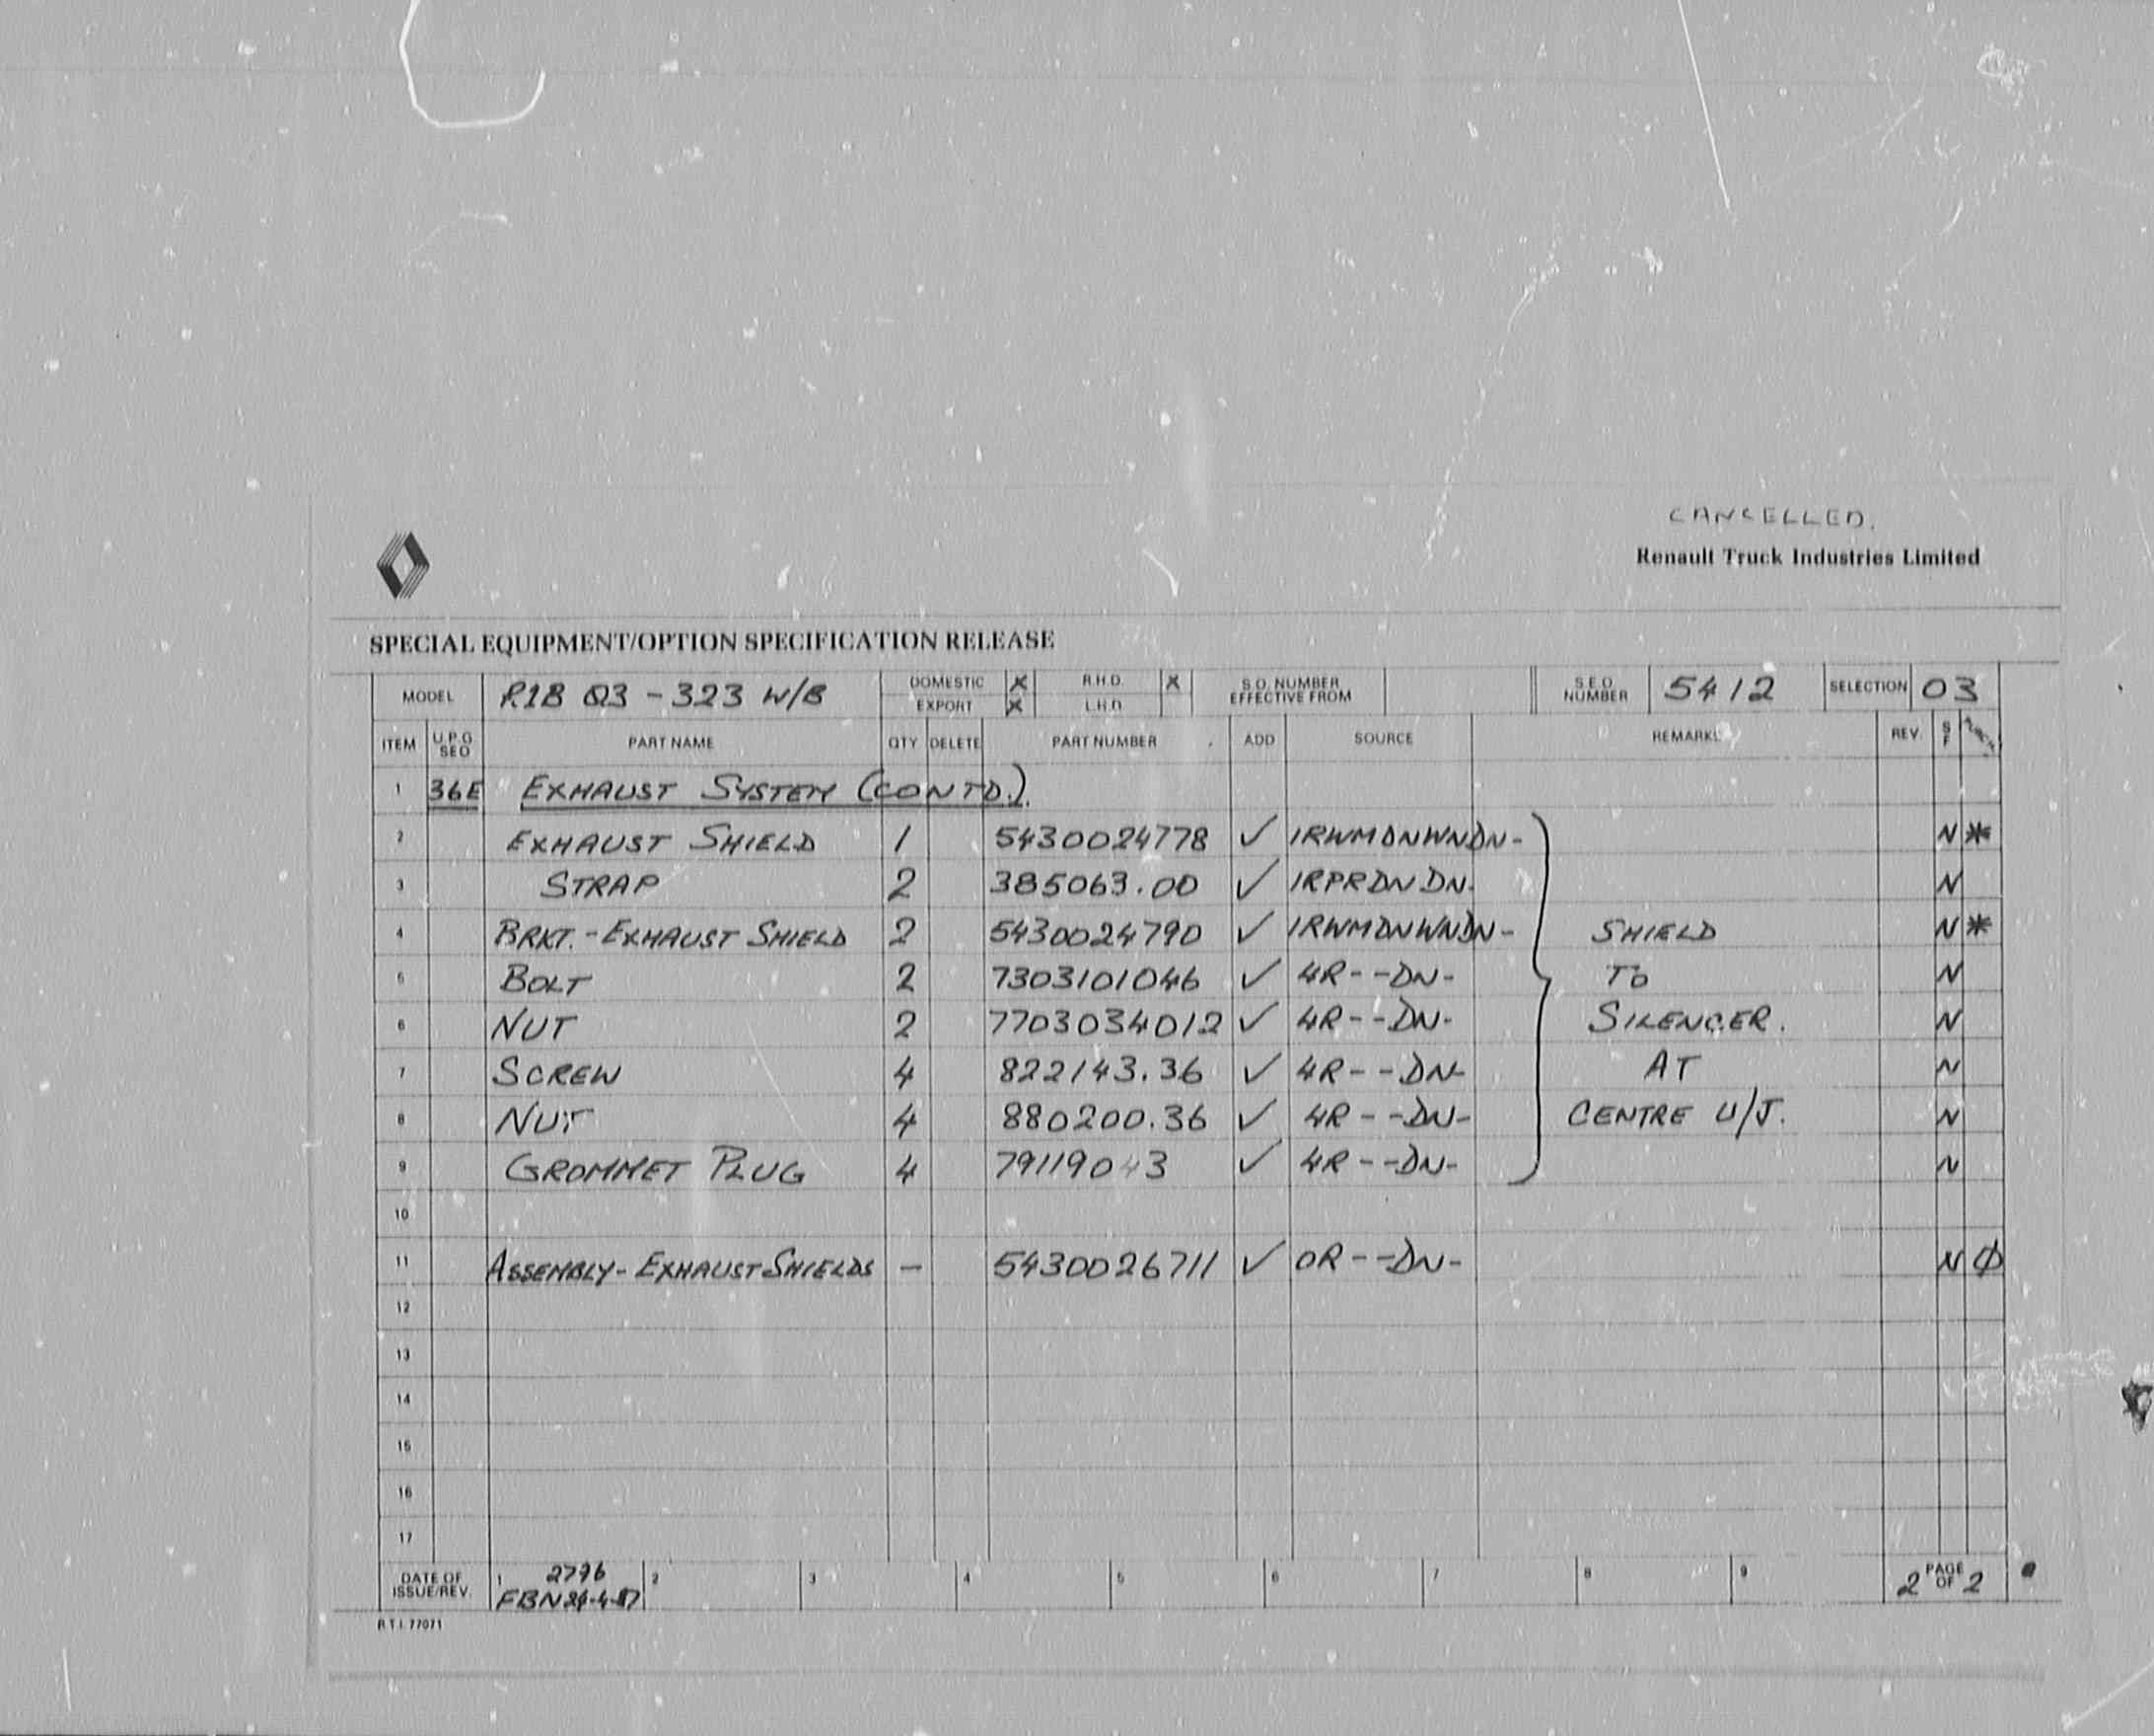 CANCELLED.
Renault Truck Industries Limited
SPECIAL EQUIPMENT/OPTION SPECIFICATION RELEASE
MODEL R1B Q3 - 323 W/B DOMESTIC X R.H.D. X S.O. NUMBER EFFECTIVE FROM S.E.O. NUMBER 5412 SELECTION 03
EXPORT X L.H.D.
ITEM U.P.G SEO PART NAME QTY DELETE PART NUMBER ADD SOURCE REMARKS REV. S F
1 36E EXHAUST SYSTEM (CONTD.)
2 EXHAUST SHIELD 1 5430024778 ✓ 1RWMDNWNDN- N *
3 STRAP 2 385063.00 ✓ 1RPRDNDN- N
4 BRKT. - EXHAUST SHIELD 2 5430024790 ✓ 1RWMDNWNDN- SHIELD N *
5 BOLT 2 7303101046 ✓ 4R--DN- TO N
6 NUT 2 7703034012 ✓ 4R--DN- SILENCER. N
7 SCREW 4 822143.36 ✓ 4R--DN- AT N
8 NUT 4 880200.36 ✓ 4R--DN- CENTRE U/J. N
9 GROMMET PLUG 4 79119043 ✓ 4R--DN- N
10
11 ASSEMBLY - EXHAUST SHIELDS - 5430026711 ✓ 0R--DN- N Ø
12
13
14
15
16
17
DATE OF ISSUE/REV. 1 2796 2 3 4 5 6 7 8 9 2 PAGE OF 2
FBN 24-4-87
R.T.I. 77071